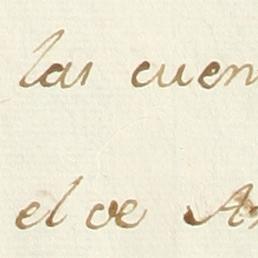 las cuen
el de A